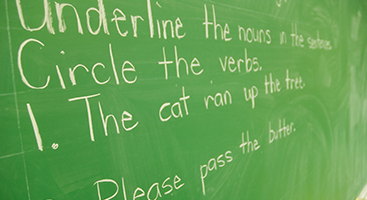 Underline the nouns in the sentences.
Circle the verbs.
1. The cat ran up the tree.
Please pass the butter.